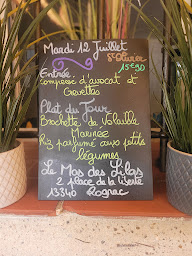 Mardi 12 Juillet
St Olivier
15€90
Entrée
compressé d'avocat et
Crevettes
Plat du Jour
Brochette de Volaille
Marinée
Riz parfumé aux petits
légumes
Le Mas des Lilas
2 place de la liberté
13340 Rognac